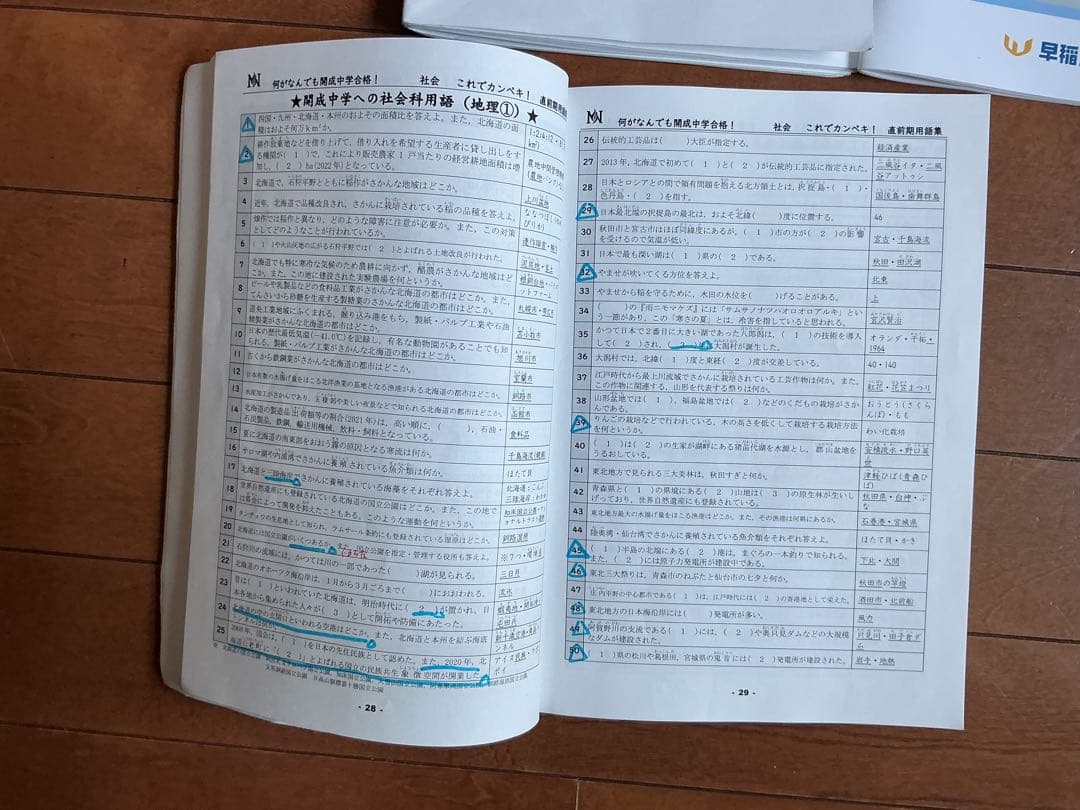 早稲
何がなんでも開成中学合格！ 社会 これでカンペキ！ 直前期用語集
★開成中学への社会科用語（地理①）★
四国・九州・北海道・本州のおよその面積比を答えよ。また、北海道の面
積はおよそ何万km²か。
耕作放棄地などを借り上げて、借り入れを希望する生産者に貸し出しをす
る機関が（1）で、これにより販売農家1戸当たりの経営耕地面積は増
加し、（2）ha(2022年)となっている。
3 北海道で、石狩平野とともに稲作がさかんな地域はどこか。 上川盆地
4 近年、北海道で品種改良され、さかんに栽培されている稲の品種を答えよ。
5 畑作では稲作と異なり、どのような障害に注意が必要か。また、この対策
としてどのようなことが行われているか。
6 （1）や火山灰地の広がる石狩平野では（2）とよばれる土地改良が行われた。
7 北海道でも特に寒冷な気候のため農耕に向かず、酪農がさかんな地域はど
こか。また、この地に建設された実験農場を何というか。
8 ビールや乳製品などの食料品工業がさかんな北海道の都市はどこか。また、
てんさいから砂糖を生産する製糖業のさかんな北海道の都市はどこか。 札幌市・帯広市
9 道央工業地域にふくまれる、掘り込み港をもち、製紙・パルプ工業や石油
精製業がさかんな北海道の都市はどこか。 苫小牧市
10 日本の歴代最低気温(-41.0℃)を記録し、有名な動物園があることでも知
られる、製紙・パルプ工業がさかんな北海道の都市はどこか。 旭川市
11 古くから鉄鋼業がさかんな北海道の都市はどこか。 室蘭市
12 日本有数の水揚げ量をほこる北洋漁業の基地となる漁港がある北海道の都市はどこか。 釧路市
13 水産加工がさかんであり、五稜郭や美しい夜景などで知られる北海道の都市はどこか。 函館市
14 北海道の製造品出荷額等の割合(2021年)は、高い順に、（ ）、石油・
石炭製品、鉄鋼、輸送用機械、飲料・飼料となっている。 食料品
15 夏に北海道の南東部をおおう霧の原因となる寒流は何か。 千島海流(親潮)
16 サロマ湖や内浦湾でさかんに養殖されている魚介類は何か。 ほたて貝
17 北海道と三陸海岸でさかんに養殖されている海藻をそれぞれ答えよ。 北海道：こんぶ
三陸海岸：わかめ
18 世界自然遺産にも登録されている北海道の国立公園はどこか。また、この地で
は募金によって開発を抑えたこともある。このような運動を何というか。
19 タンチョウの生息地として知られ、ラムサール条約にも登録されている湿原はどこか。 釧路湿原
20 北海道には国立公園がいくつあるか。また、国立公園を指定・管理する役所も答えよ。 ※7つ・環境省
21 石狩川の流域には、かつては川の一部であった（ ）湖が見られる。 三日月
22 北海道のオホーツク海沿岸は、1月から3月ごろまで（ ）におおわれる。 流氷
23 昔は（1）といわれていた北海道は、明治時代に（2）が置かれ、日
本各地から集められた人々が（3）として開拓や防備にあたった。
24 北海道の空の玄関口といわれる空港はどこか。また、北海道と本州を結ぶ海底
トンネルは何か。
25 2008年、国会は、（1）を日本の先住民族として認めた。また、2020年、北
海道白老町に（2）とよばれる国立の民族共生象徴空間が開業した。
- 28 -
何がなんでも開成中学合格！ 社会 これでカンペキ！ 直前期用語集
26 伝統的工芸品は（ ）大臣が指定する。 経済産業
27 2013年、北海道で初めて（1）と（2）が伝統的工芸品に指定された。 二風谷イタ・二風
谷アットゥシ
28 日本とロシアとの間で領有問題を抱える北方領土とは、択捉島・（1）・
色丹島・（2）を指す。 国後島・歯舞群島
29 日本最北端の択捉島の最北は、およそ北緯（ ）度に位置する。 46
30 秋田市と宮古市はほぼ同緯度にあるが、（1）市の方が（2）の影響
を受けるので気温が低い。 宮古・千島海流
31 日本で最も深い湖は（1）県の（2）である。 秋田・田沢湖
32 やませが吹いてくる方位を答えよ。 北東
33 やませから稲を守るために、水田の水位を（ ）げることがある。 上
34 （ ）の『雨ニモマケズ』には「サムサノナツハオロオロアルキ」とい
う一節があり、この「寒さの夏」とは、冷害を指していると思われる。 宮沢賢治
35 かつて日本で2番目に大きい湖であった八郎潟は、（1）の技術を導入
して（2）され、（3）年大潟村が誕生した。 オランダ・干拓・
1964
36 大潟村では、北緯（1）度と東経（2）度が交差している。 40・140
37 江戸時代から最上川流域でさかんに栽培されている工芸作物は何か。また、
この作物に関連する、山形を代表する祭りは何か。 紅花・花笠まつり
38 山形盆地では（1）、福島盆地では（2）などのくだもの栽培がさか
んである。 おうとう(さくら
んぼ)・もも
39 りんごの栽培などで行われている、木の高さを低くして栽培する栽培方法
を何というか。 わい化栽培
40 （1）は（2）の生家が湖畔にある猪苗代湖を水源とし、郡山盆地を
うるおしている。 安積疏水・野口英
世
41 東北地方で見られる三大美林は、秋田すぎと何か。 津軽ひば(青森ひ
ば)
42 青森県と（1）の県境にある（2）山地は（3）の原生林が生いし
げっており、世界自然遺産にも登録されている。 秋田県・白神・ぶ
な
43 東北地方最大の水揚げ量をほこる漁港はどこか。また、その漁港は何県にあるか。 石巻港・宮城県
44 陸奥湾・仙台湾でさかんに養殖されている魚介類をそれぞれ答えよ。 ほたて貝・かき
45 （1）半島の北端にある（2）港は、まぐろの一本釣りで知られる。
また、（2）には原子力発電所が建設中である。 下北・大間
46 東北三大祭りは、青森市のねぶたと仙台市の七夕と何か。 秋田市の竿燈
47 庄内平野の中心都市である（1）は、江戸時代には（2）の寄港地として栄えた。 酒田市・北前船
48 東北地方の日本海沿岸には（ ）発電所が多い。 風力
49 阿賀野川の支流である（1）には、（2）や奥只見ダムなどの大規模
なダムが建設された。 只見川・田子倉ダ
ム
50 （1）県の松川や葛根田、宮城県の鬼首には（2）発電所が建設された。 岩手・地熱
- 29 -